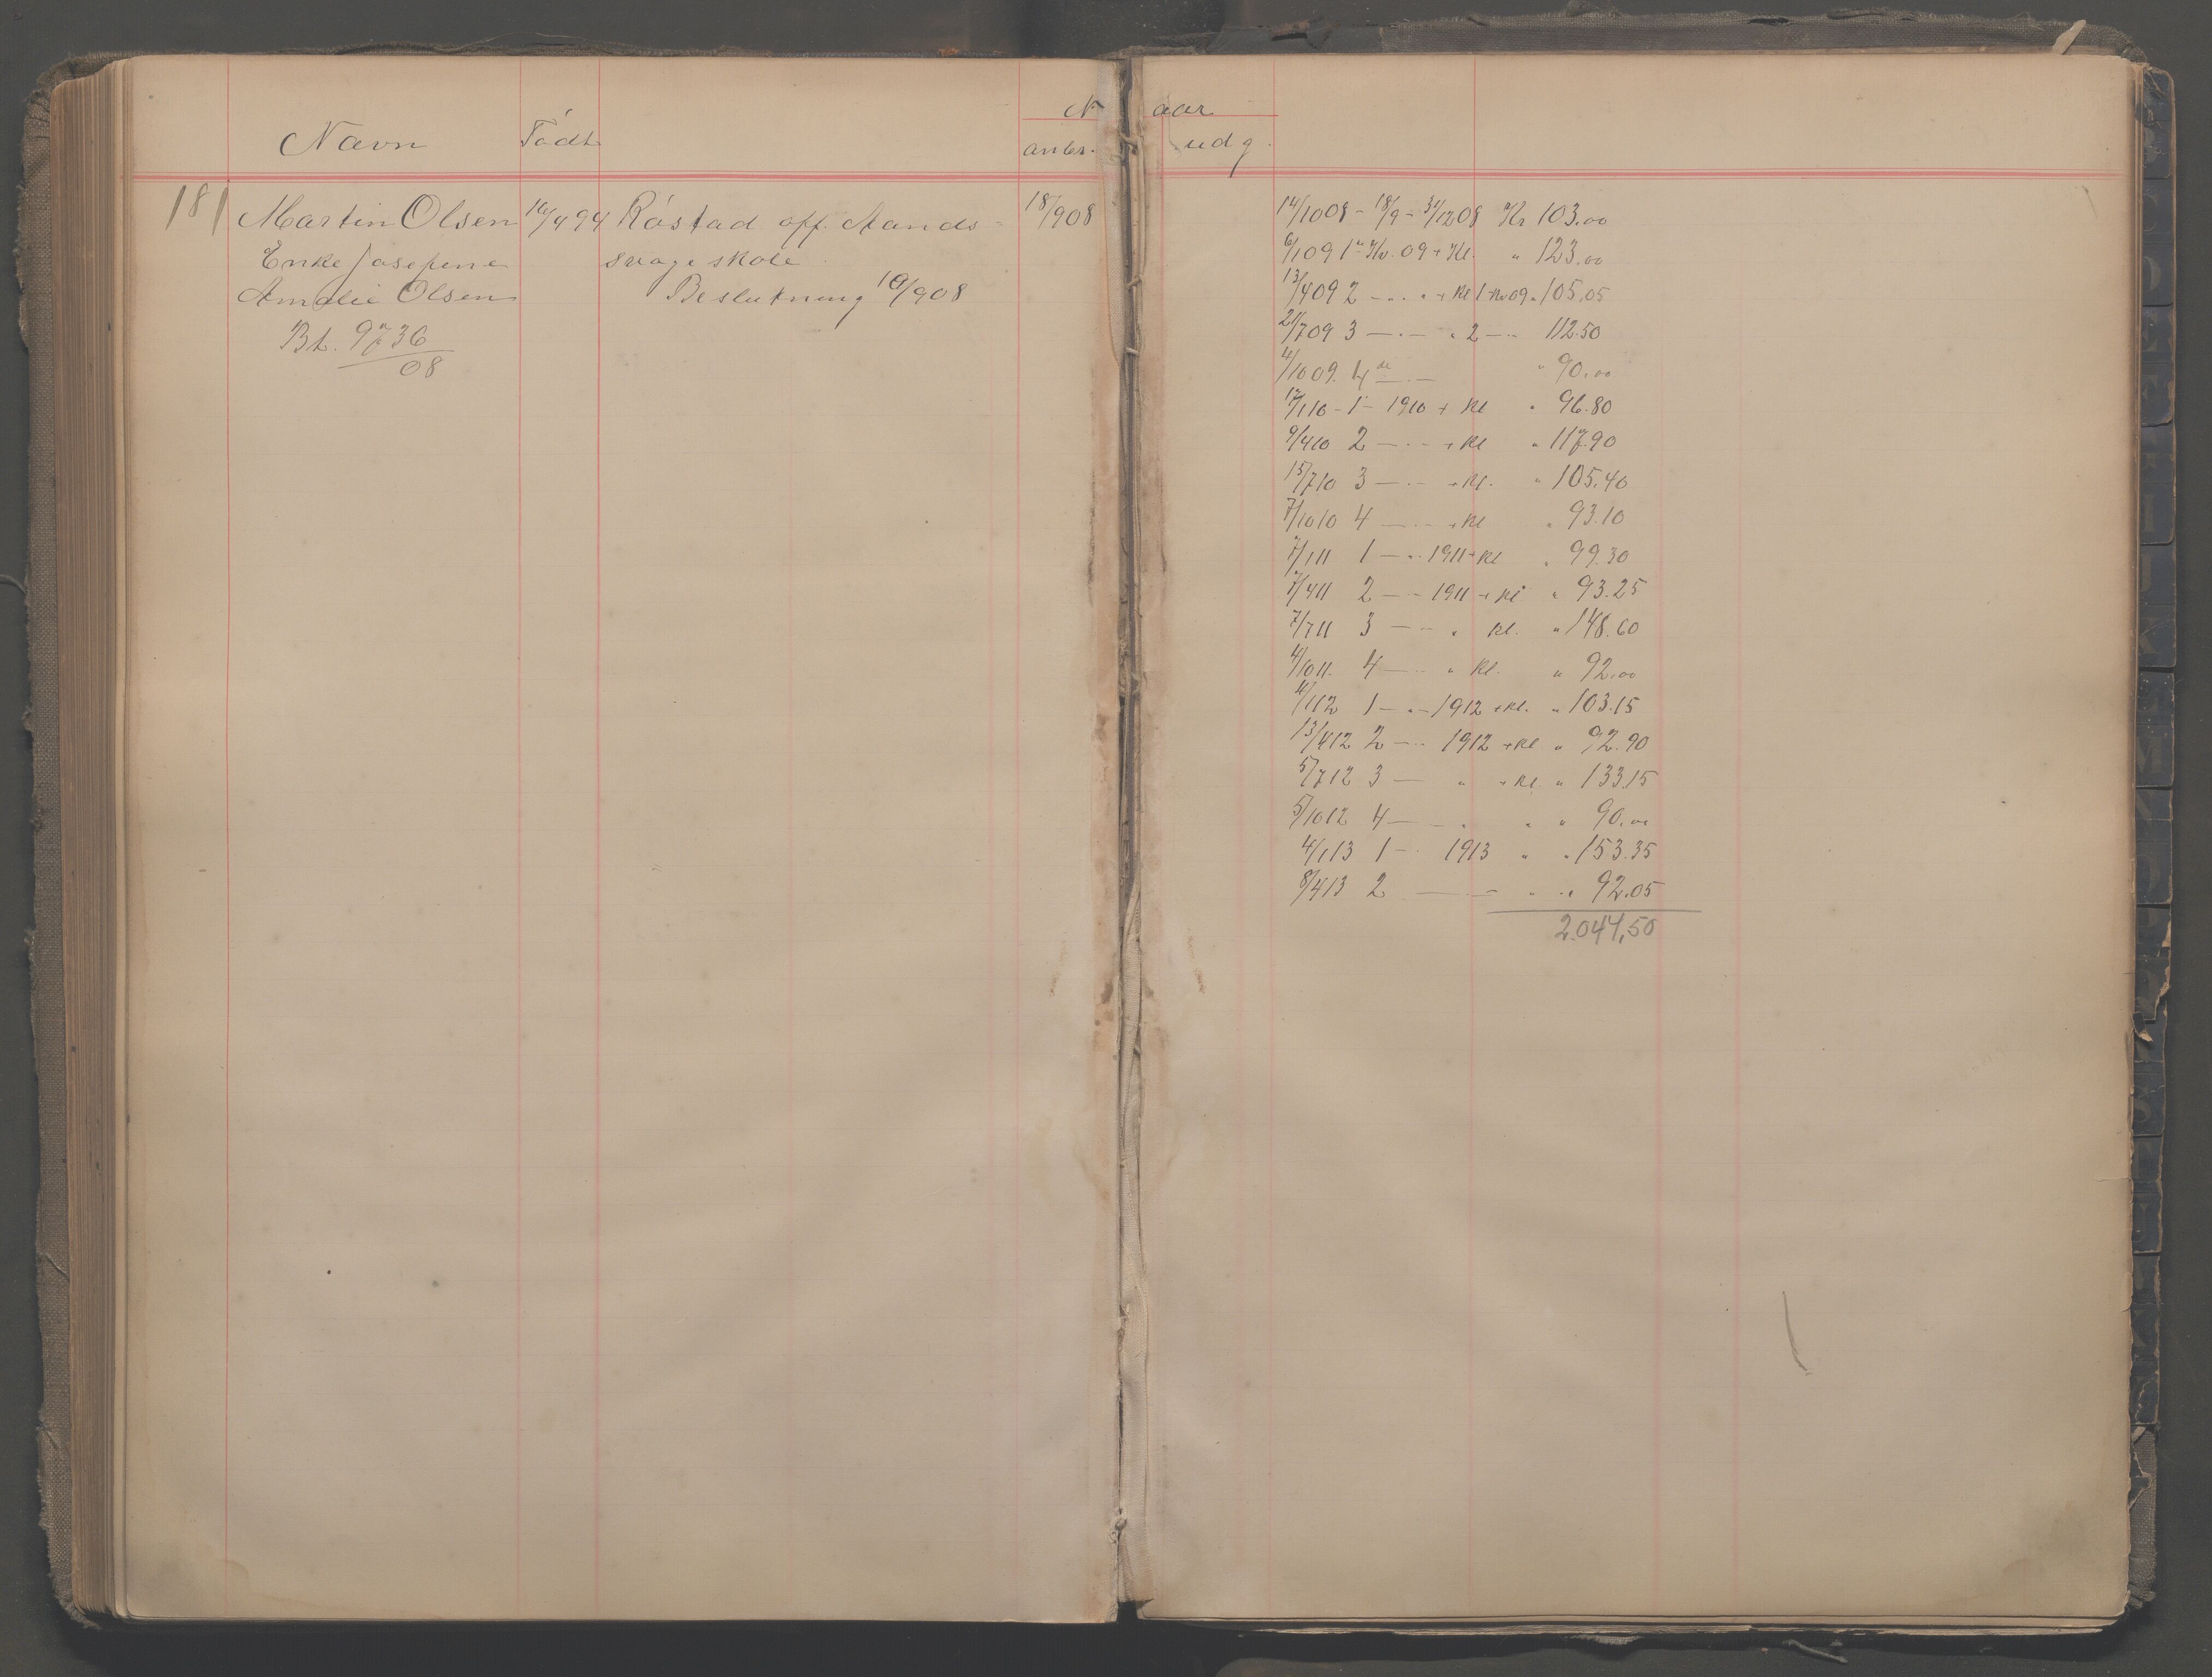 Navn Födt Naar
anbr. udg.
181 Martin Olsen 16/4 94 Röstad off. Aands- 18/9 08
Enke Josefine svage skole
Amalie Olsen Beslutning 10/9 08
Bt. 9736
08
14/10 08 - 18/9 - 31/12 08 Kr 103.00
6/1 09 1ste Kv. 09 + Kl. " 123.00
13/4 09 2 - " - " + Kl 1 Kv 09 " 105.05
21/7 09 3 - " - " 2 - " 112.50
4/10 09. 4de - " - " 90.00
17/1 10 - 1 - 1910 + Kl " 96.80
9/4 10 2 - " - + Kl " 117.90
15/7 10 3 - " - + Kl. " 105.40
7/10 10 4 - " - + Kl " 93.10
7/1 11 1 - " - 1911 + Kl " 99.30
7/4 11 2 - " - 1911 + Kl " 93.25
7/7 11 3 - " - " Kl. " 148.60
4/10 11. 4 - " - " Kl. " 92.00
4/1 12 1 - " - 1912 + Kl. " 103.15
13/4 12 2 - " - 1912 + Kl " 92.90
5/7 12 3 - " + Kl. " 133.15
5/10 12 4 - " - " " " 90.00
4/1 13 1 - " 1913 " " 153.35
8/4 13 2 - " - " " " 92.05
2.044,50